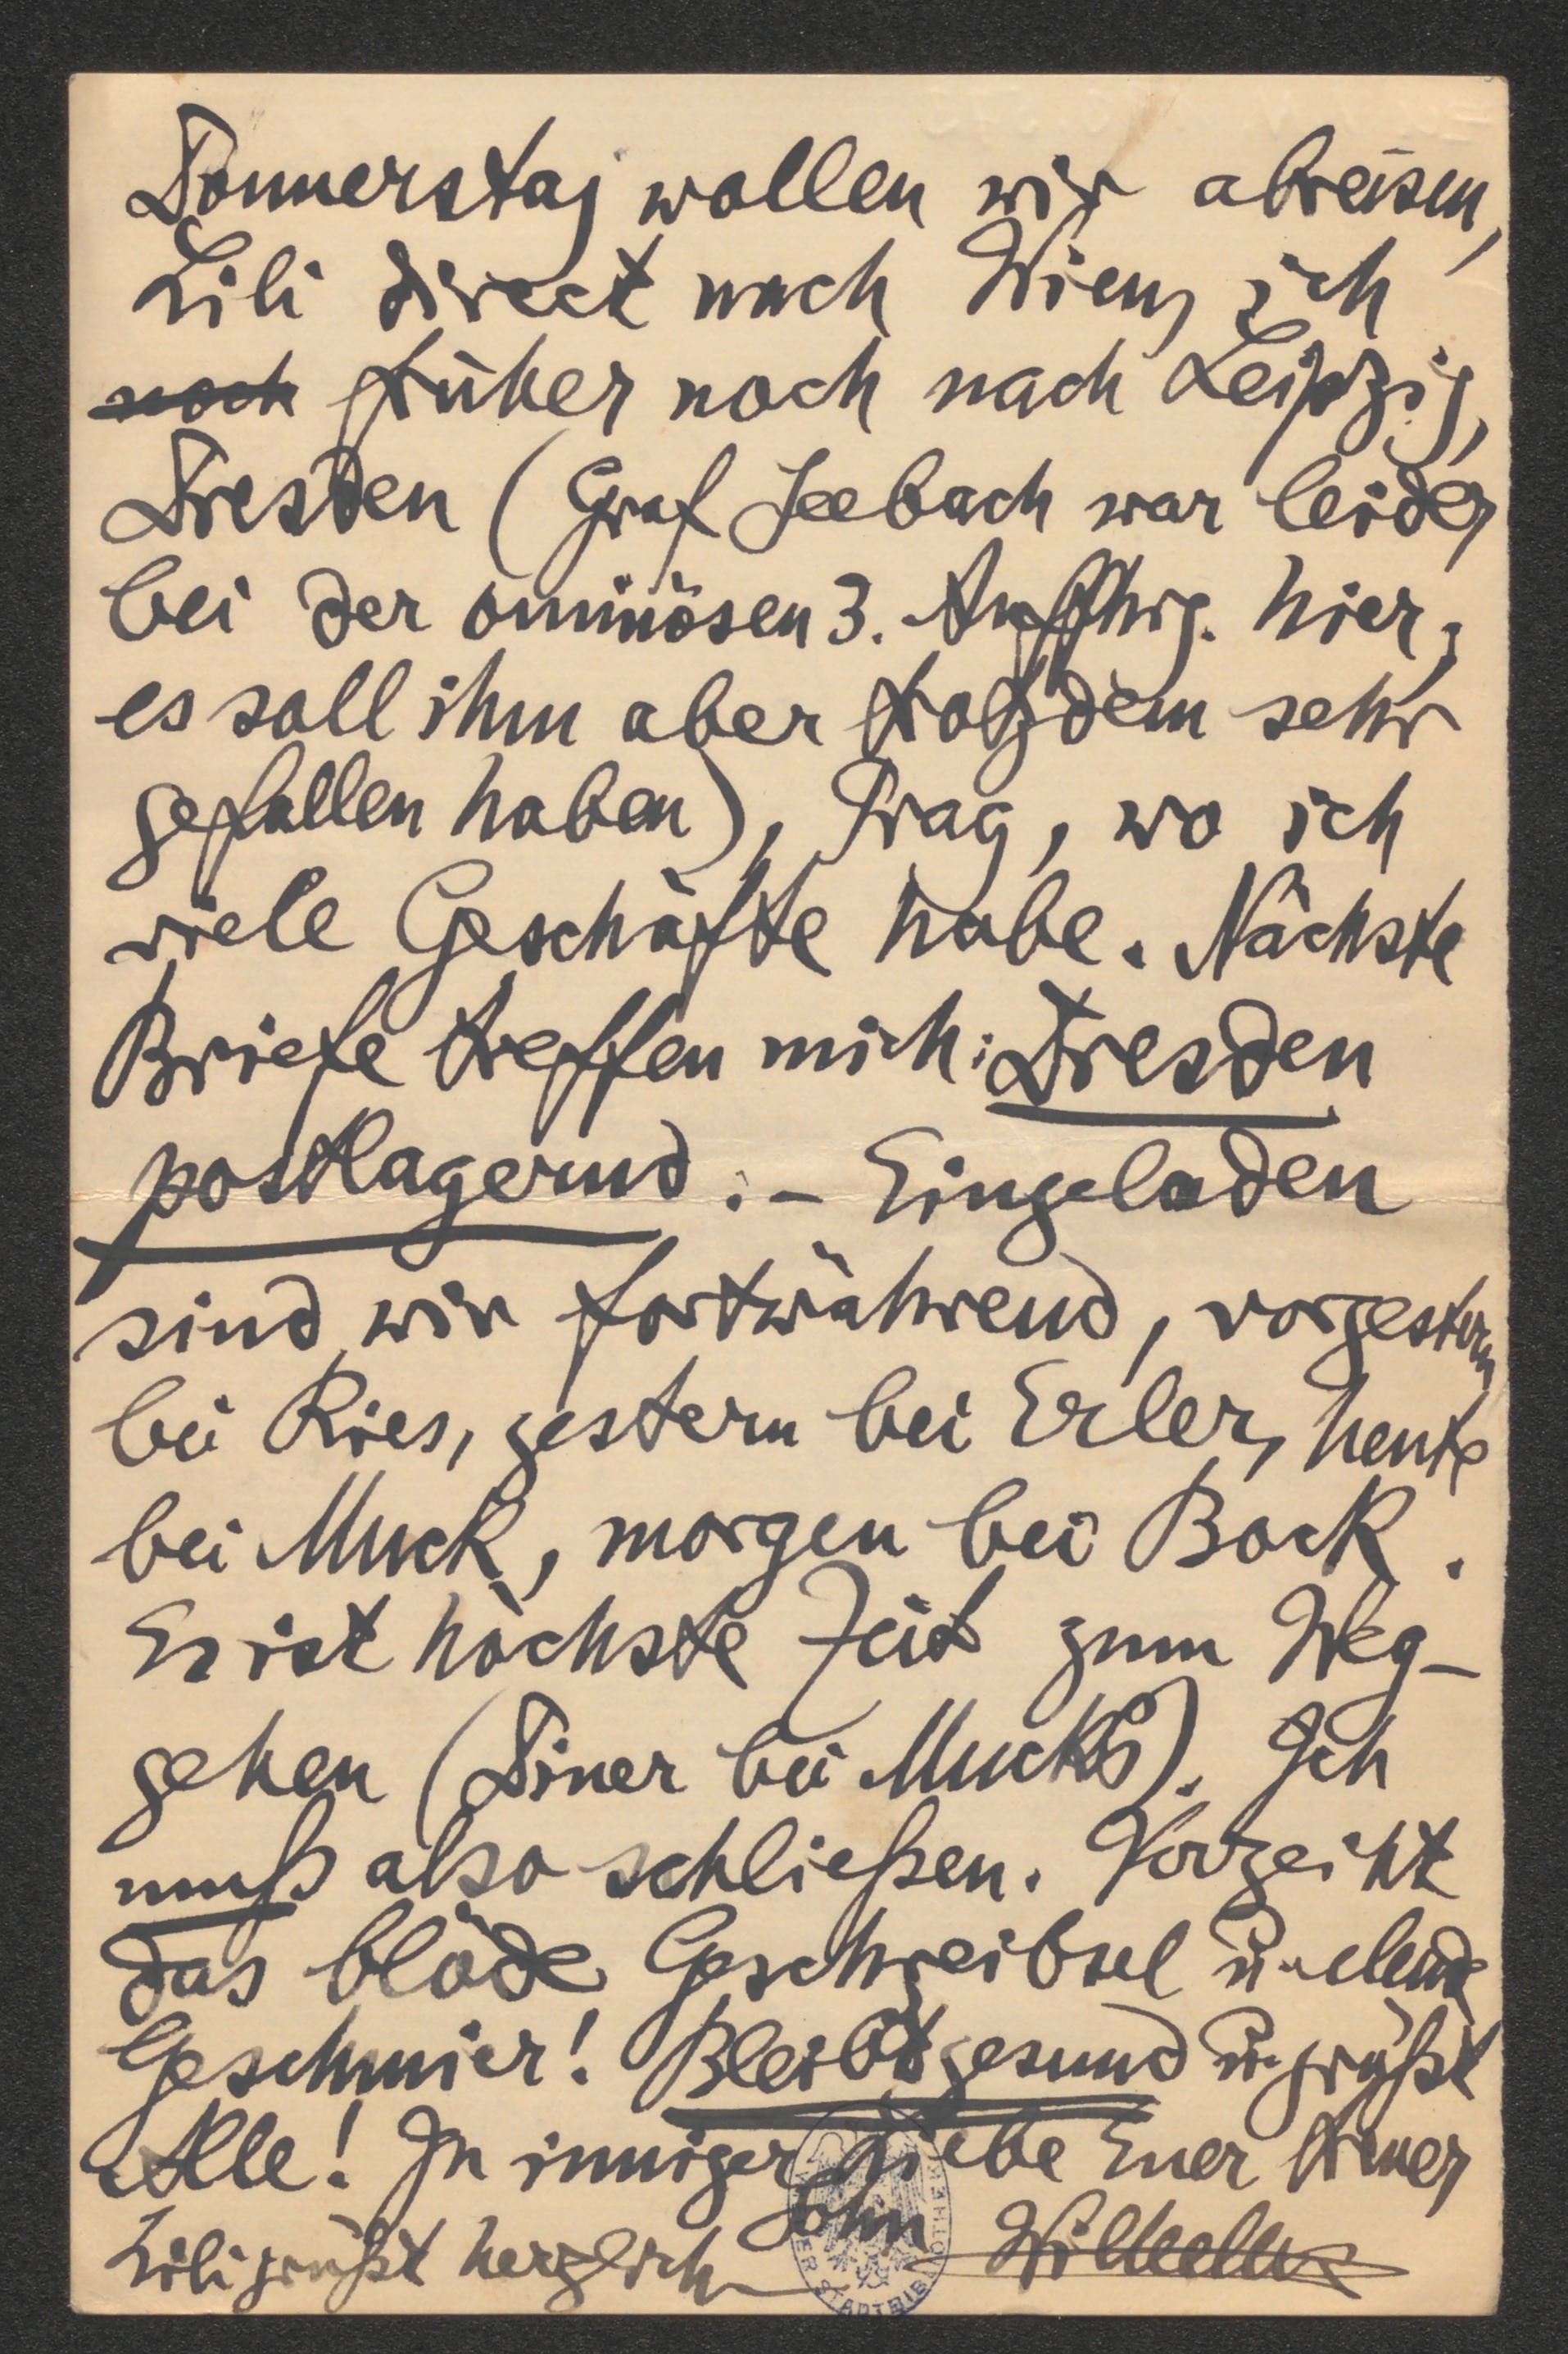 Donnerstag wollen wir abreisen,
Lili direct nach Wien, ich
noch früher noch nach Leipzig,
Dresden (Graf Seebach war leider
bei der ominösen 3. Auffhrg. hier,
es soll ihm aber trotzdem sehr
gefallen haben), Prag, wo ich
viele Geschäfte habe. Nächste
Briefe treffen mich: Dresden
postlagernd. – Eingeladen
sind wir fortwährend, vorgestern
bei Ries, gestern bei Erler, heute
bei Muck, morgen bei Bock.
Es ist höchste Zeit zum Weg-
gehen (Diner bei Mucks). Ich
muß also schließen. Verzeiht
das blöde Geschreibsel u. elende
Geschmier! Bleibt gesund u. grüßt
Alle! In inniger Liebe Euer treuer
Sohn Wilhelm
Lili grüßt herzlich